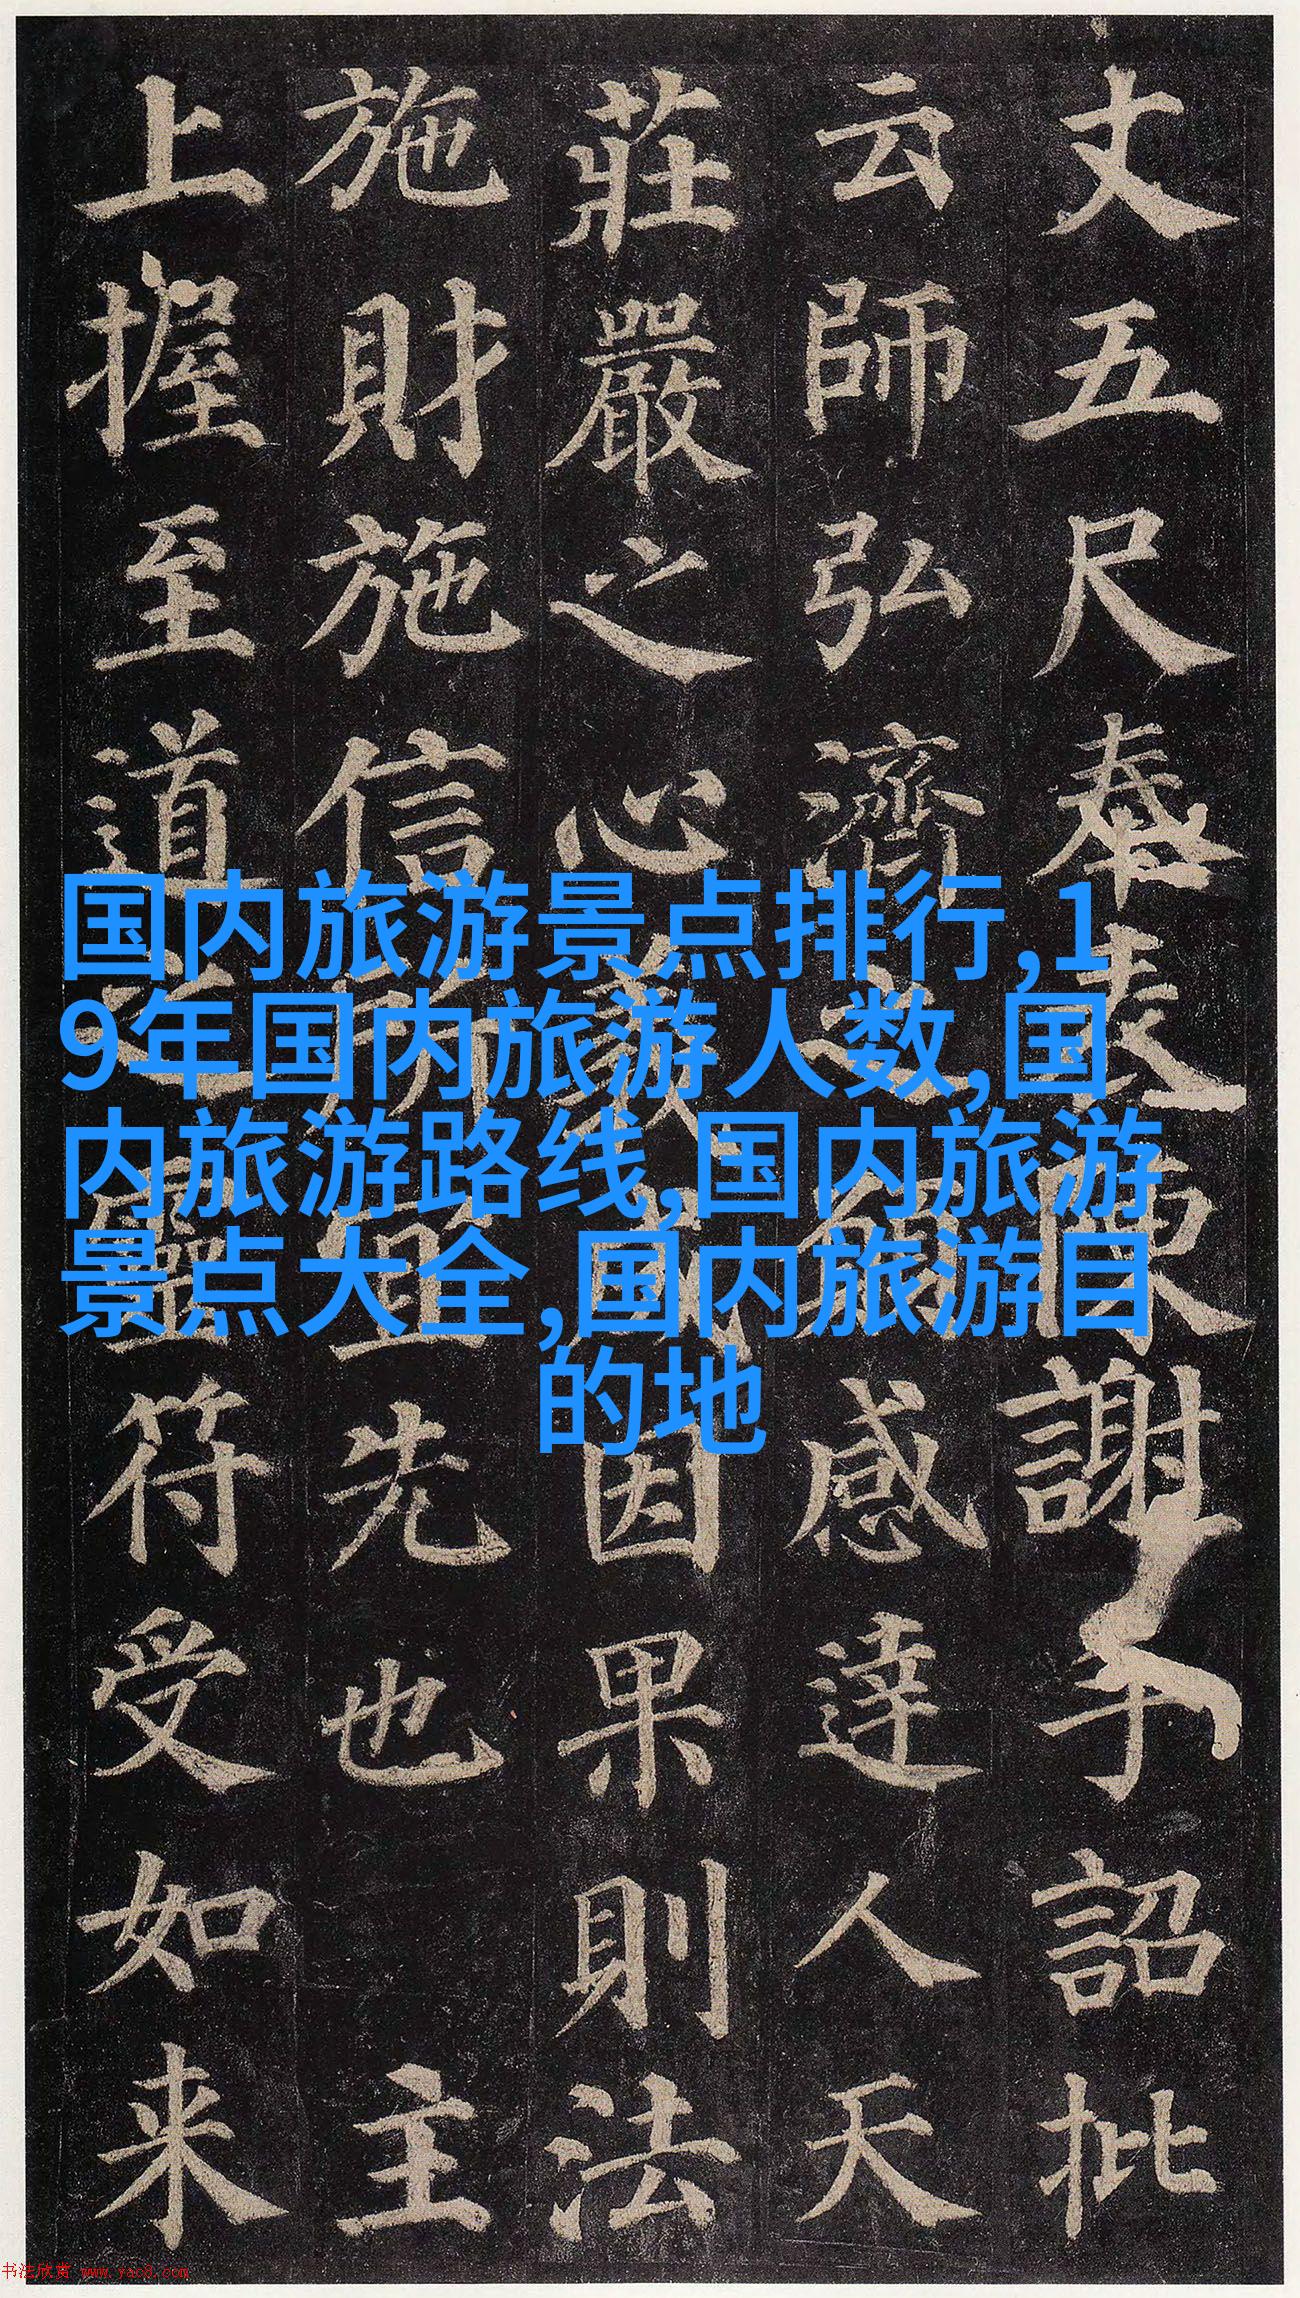 丈五尺奉表陳謝手詔批
云師弘濟之願感達人天
莊嚴之心義成因果則法
施財施信所宜先也 主
上握至道之靈符受如来
国内旅游景点排行,1
9年国内旅游人数,国
内旅游路线,国内旅游
景点大全,国内旅游目
的地
书法欣赏 www.yac8.com